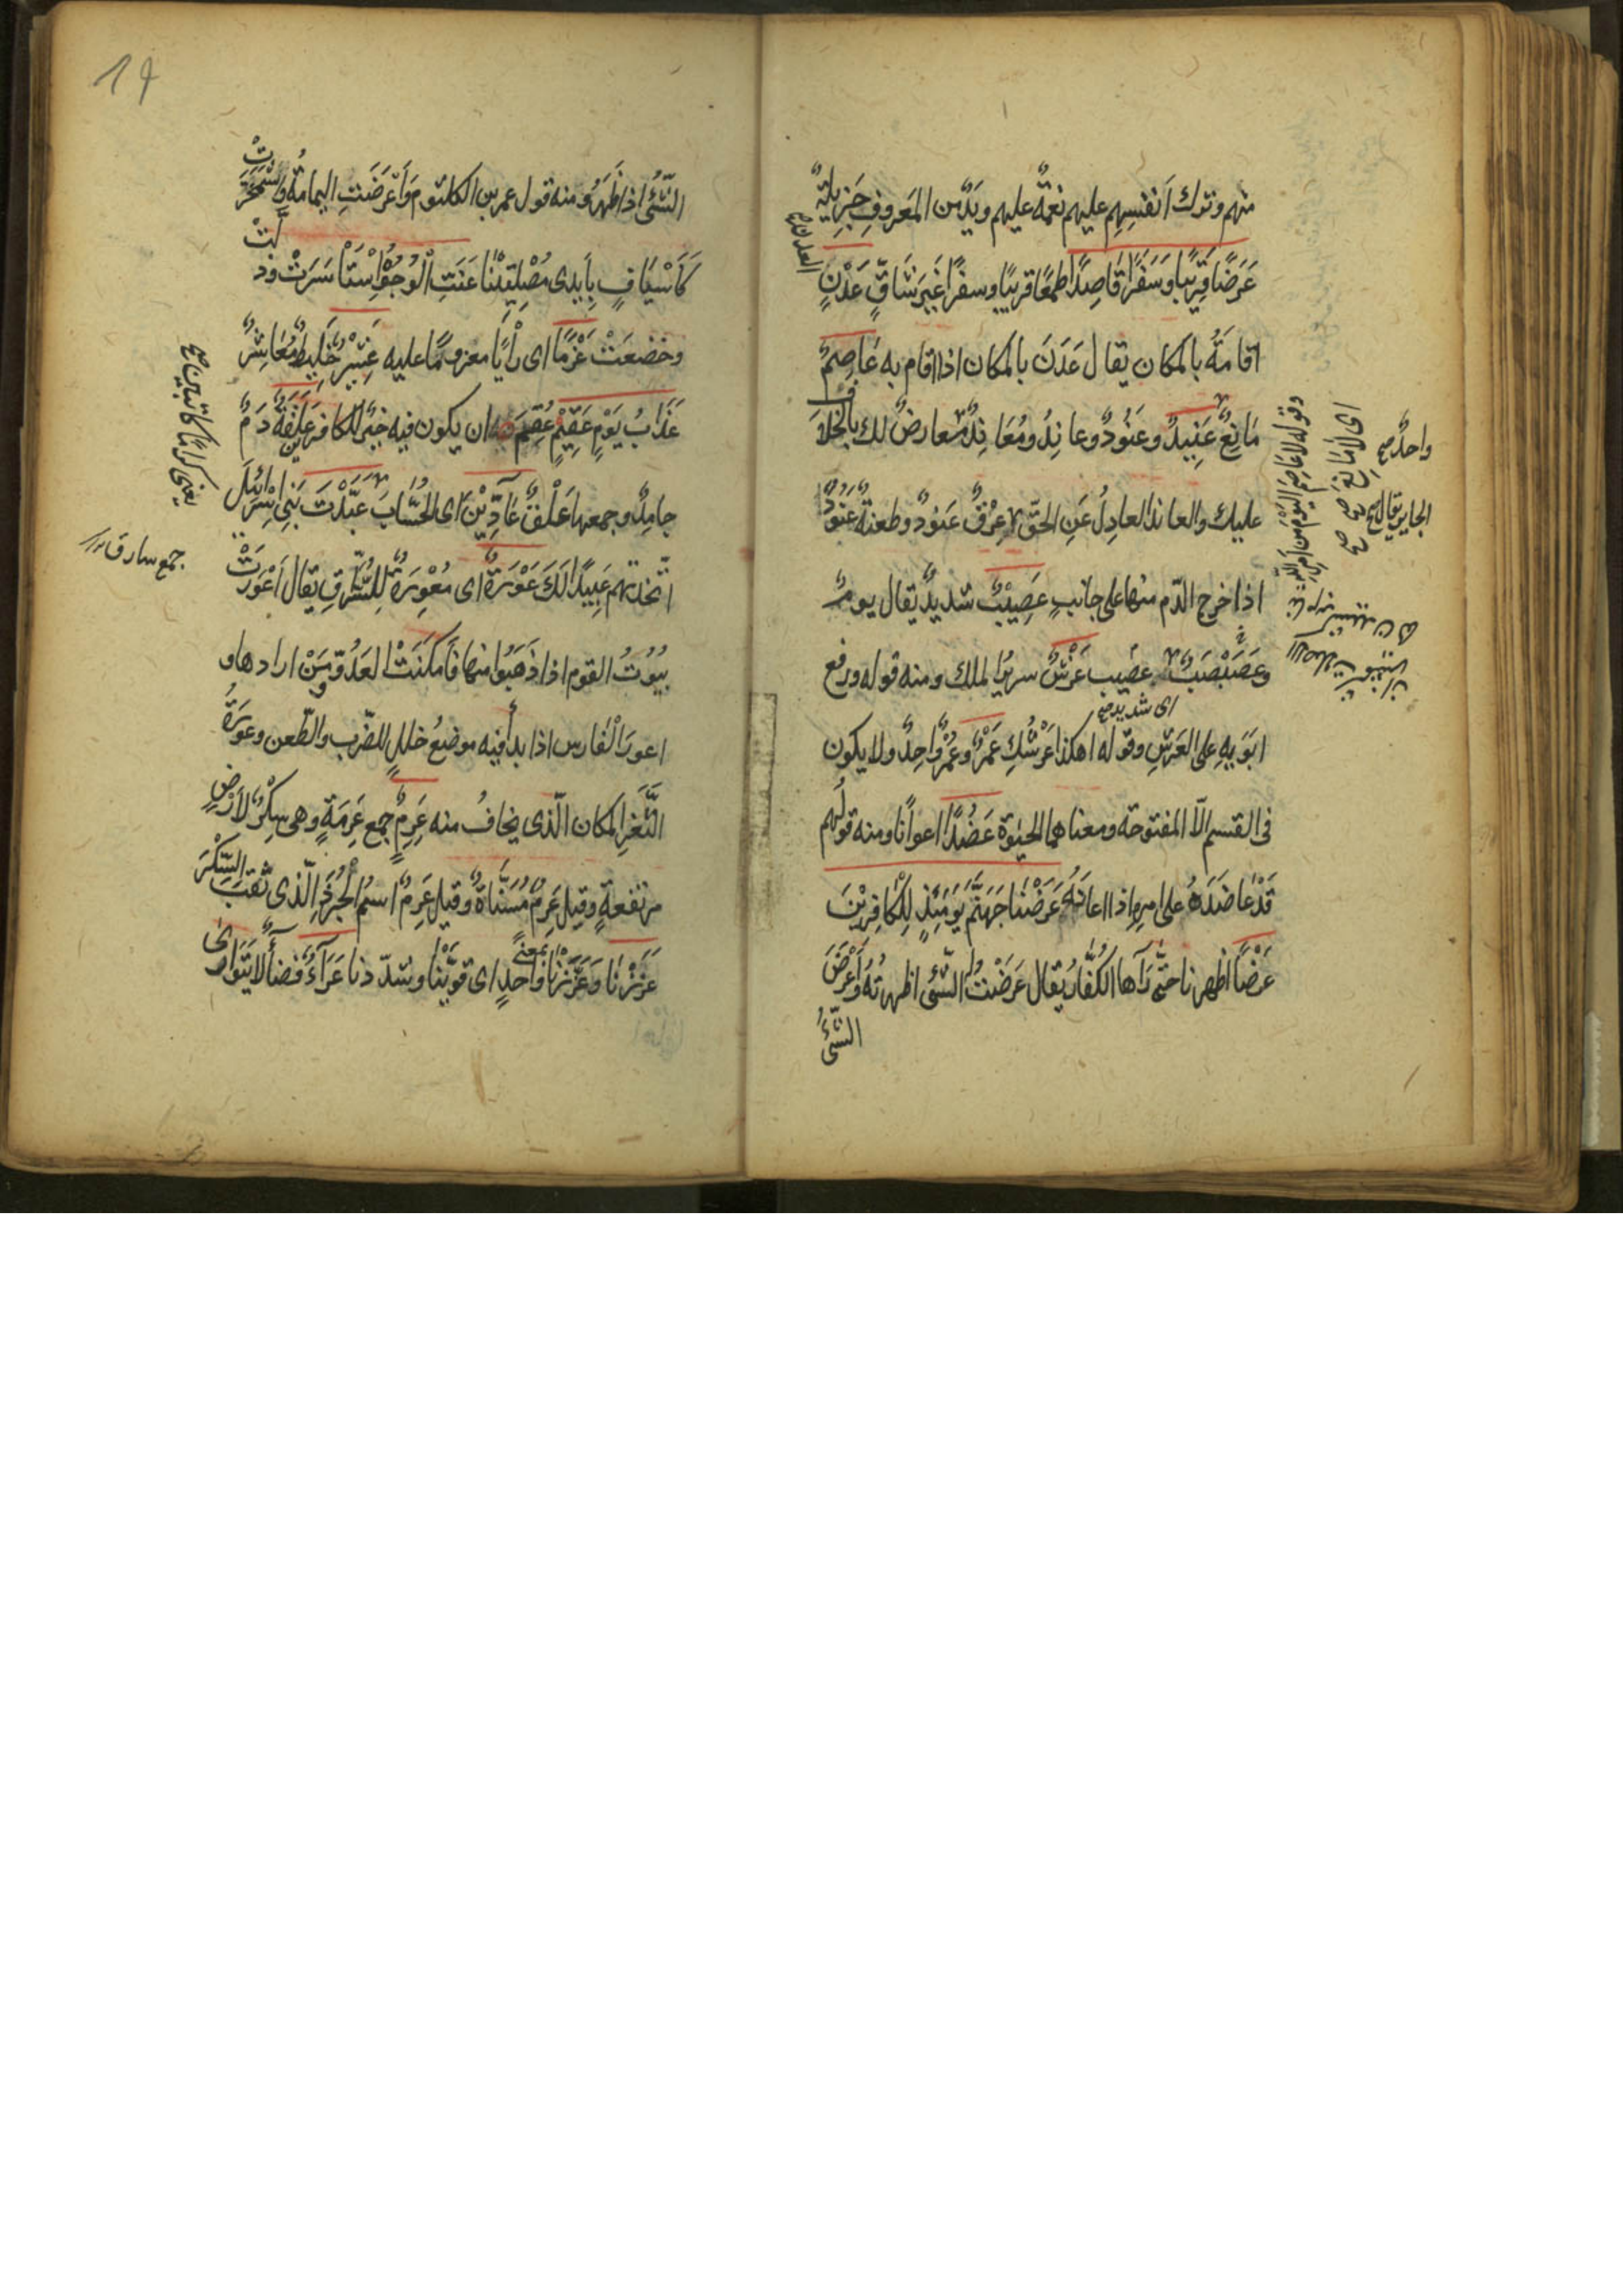 منهم وترك أنفسهم عليهم نعمة عليهم ويد من المعروف جزيلة
عَرَضًا قَرِيبًا وَسَفَرًا قَاصِدًا طمعًا قريبًا وسفرًا غَيرَ شَاقٍّ عَدْنٍ
اقامَةُ بالمكان يقال عَدَنَ بالمكان اذا اقام به عَاصِمٌ
مَانِعٌ عَنِيدٌ وعَنُودٌ وعانِدُ ومُعَانِدٌ معارضٌ لك بالخلاف
عليك والعاند العادِلُ عَنِ الحَقّ عِرْقٌ عَنُودٌ وطعنةٌ عَنُودٌ
اذا خرج الدّم منها على جانبٍ عَصِيْبٌ شديدٌ يقال يومٌ
عصيب عَرْشٌ سريرُ الملك ومنه قوله ورفع
اَبَوَيهِ على العَرشِ وقوله اهكذا عَرْشُكِ عَمْرٌ وعُمْرٌ واحِدٌ ولا يكون
فى القسم الاّ المفتوحة ومعناهما الحيٰوة عَضُدًا اعوانًا ومنه قولُهم
قَدْ عَاضَدَهُ على امرِهِ اذا اعانَهُ عَرَضْنَا جَهَنَّمَ يَومَئِذٍ لِلْكَافِرِيْنَ
عَرْضًا اظهرنا حتّى رَآها الكُفَّارُ يُقال عَرَضْتُ الشّئ اظهرتُهُ وَاَعْرَضَ
الشّئُ
العدن
واحدٌ صح
الجابر يقال صح
اى لا مانع صح صح
وقوله لا عَاصِمَ اليَوْمَ مِن اَمرِ اللّٰهِ
اى شديد صح
19
الشّئُ اذا ظَهَرَ ومنه قول عمر بن الكلثوم وَاَعرَضَتِ اليمامةُ واشْمَخَرَّتْ
كَاَسْيَافٍ بِاَيدى مُصْلِتِيْنَا عَنَتِ الْوُجُوْهُ اِسْتَاسَرَتْ وذلَّتْ
وخضعَتْ عَزْمًا اى رَأْيًا معزومًا عليه عَشِيْرٌ خَلِيطٌ مُعَاشِرٌ
عَذَابُ يَوْمٍ عَقِيْمٍ عُقِمَ ان يكون فيه خيرٌ للكافرين عَلَقَةٌ دَمٌ
جامِدٌ وجمعها عَلَقٌ عَآدِّيْنَ اى الحُسَّابَ عَبَّدْتَ بَنِى اِسْرَائِيلَ
اتّخذتهم عَبِيدًا لَكَ عَوْرَةٌ اى مُعْوِرَةٌ لِلسُّرَّقِ يقال اَعْوَرَتْ
بيُوتُ القوم اذا ذَهَبُوا منها فَاَمكَنَتْ العَدُوّ ومَنْ ارادها و
اعورَ الفارس اذا بدأ فيه موضعُ خللٍ للضّرب والطّعن وعورَةُ
الثَّغرِ المكان الّذى يخافُ منه عَرِمٌ جمع عَرِمَةٍ وهى سِكْرٌ لاَرْضٍ
مرتفعةٍ وقيل عَرِمٌ مُسَنَّاةٌ وقيل عَرِمٌ اسمُ الْجُرَذِ الّذى ثَقَبَ السِّكْرَ
عَزَزْنَا وَعَزَّزْنَا بمعنًى واحدٍ اى قوّينا وشدّدنا عَرَآءٌ فضآءٌ لا يَتَوَارٰى
يعنى كرامًا كاتبين صح
جمع سارق